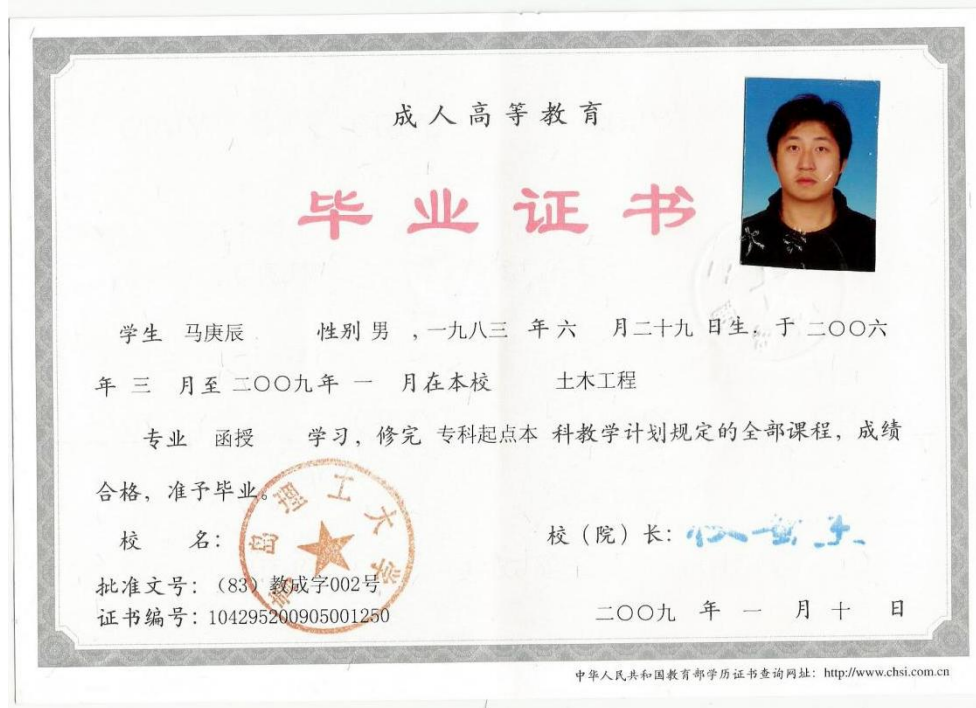 成人高等教育
毕业证书
学生 马庚辰 性别 男 ,一九八三 年 六 月二十九 日生,于 二〇〇六
年 三 月至 二〇〇九年 一 月在本校 土木工程
专业 函授 学习,修完 专科起点本 科教学计划规定的全部课程,成绩
合格,准予毕业。
青岛理工大学
校 名: 校(院)长:
批准文号:(83)教成字002号
证书编号:104295200905001250
二〇〇九 年 一 月 十 日
中华人民共和国教育部学历证书查询网址:http://www.chsi.com.cn